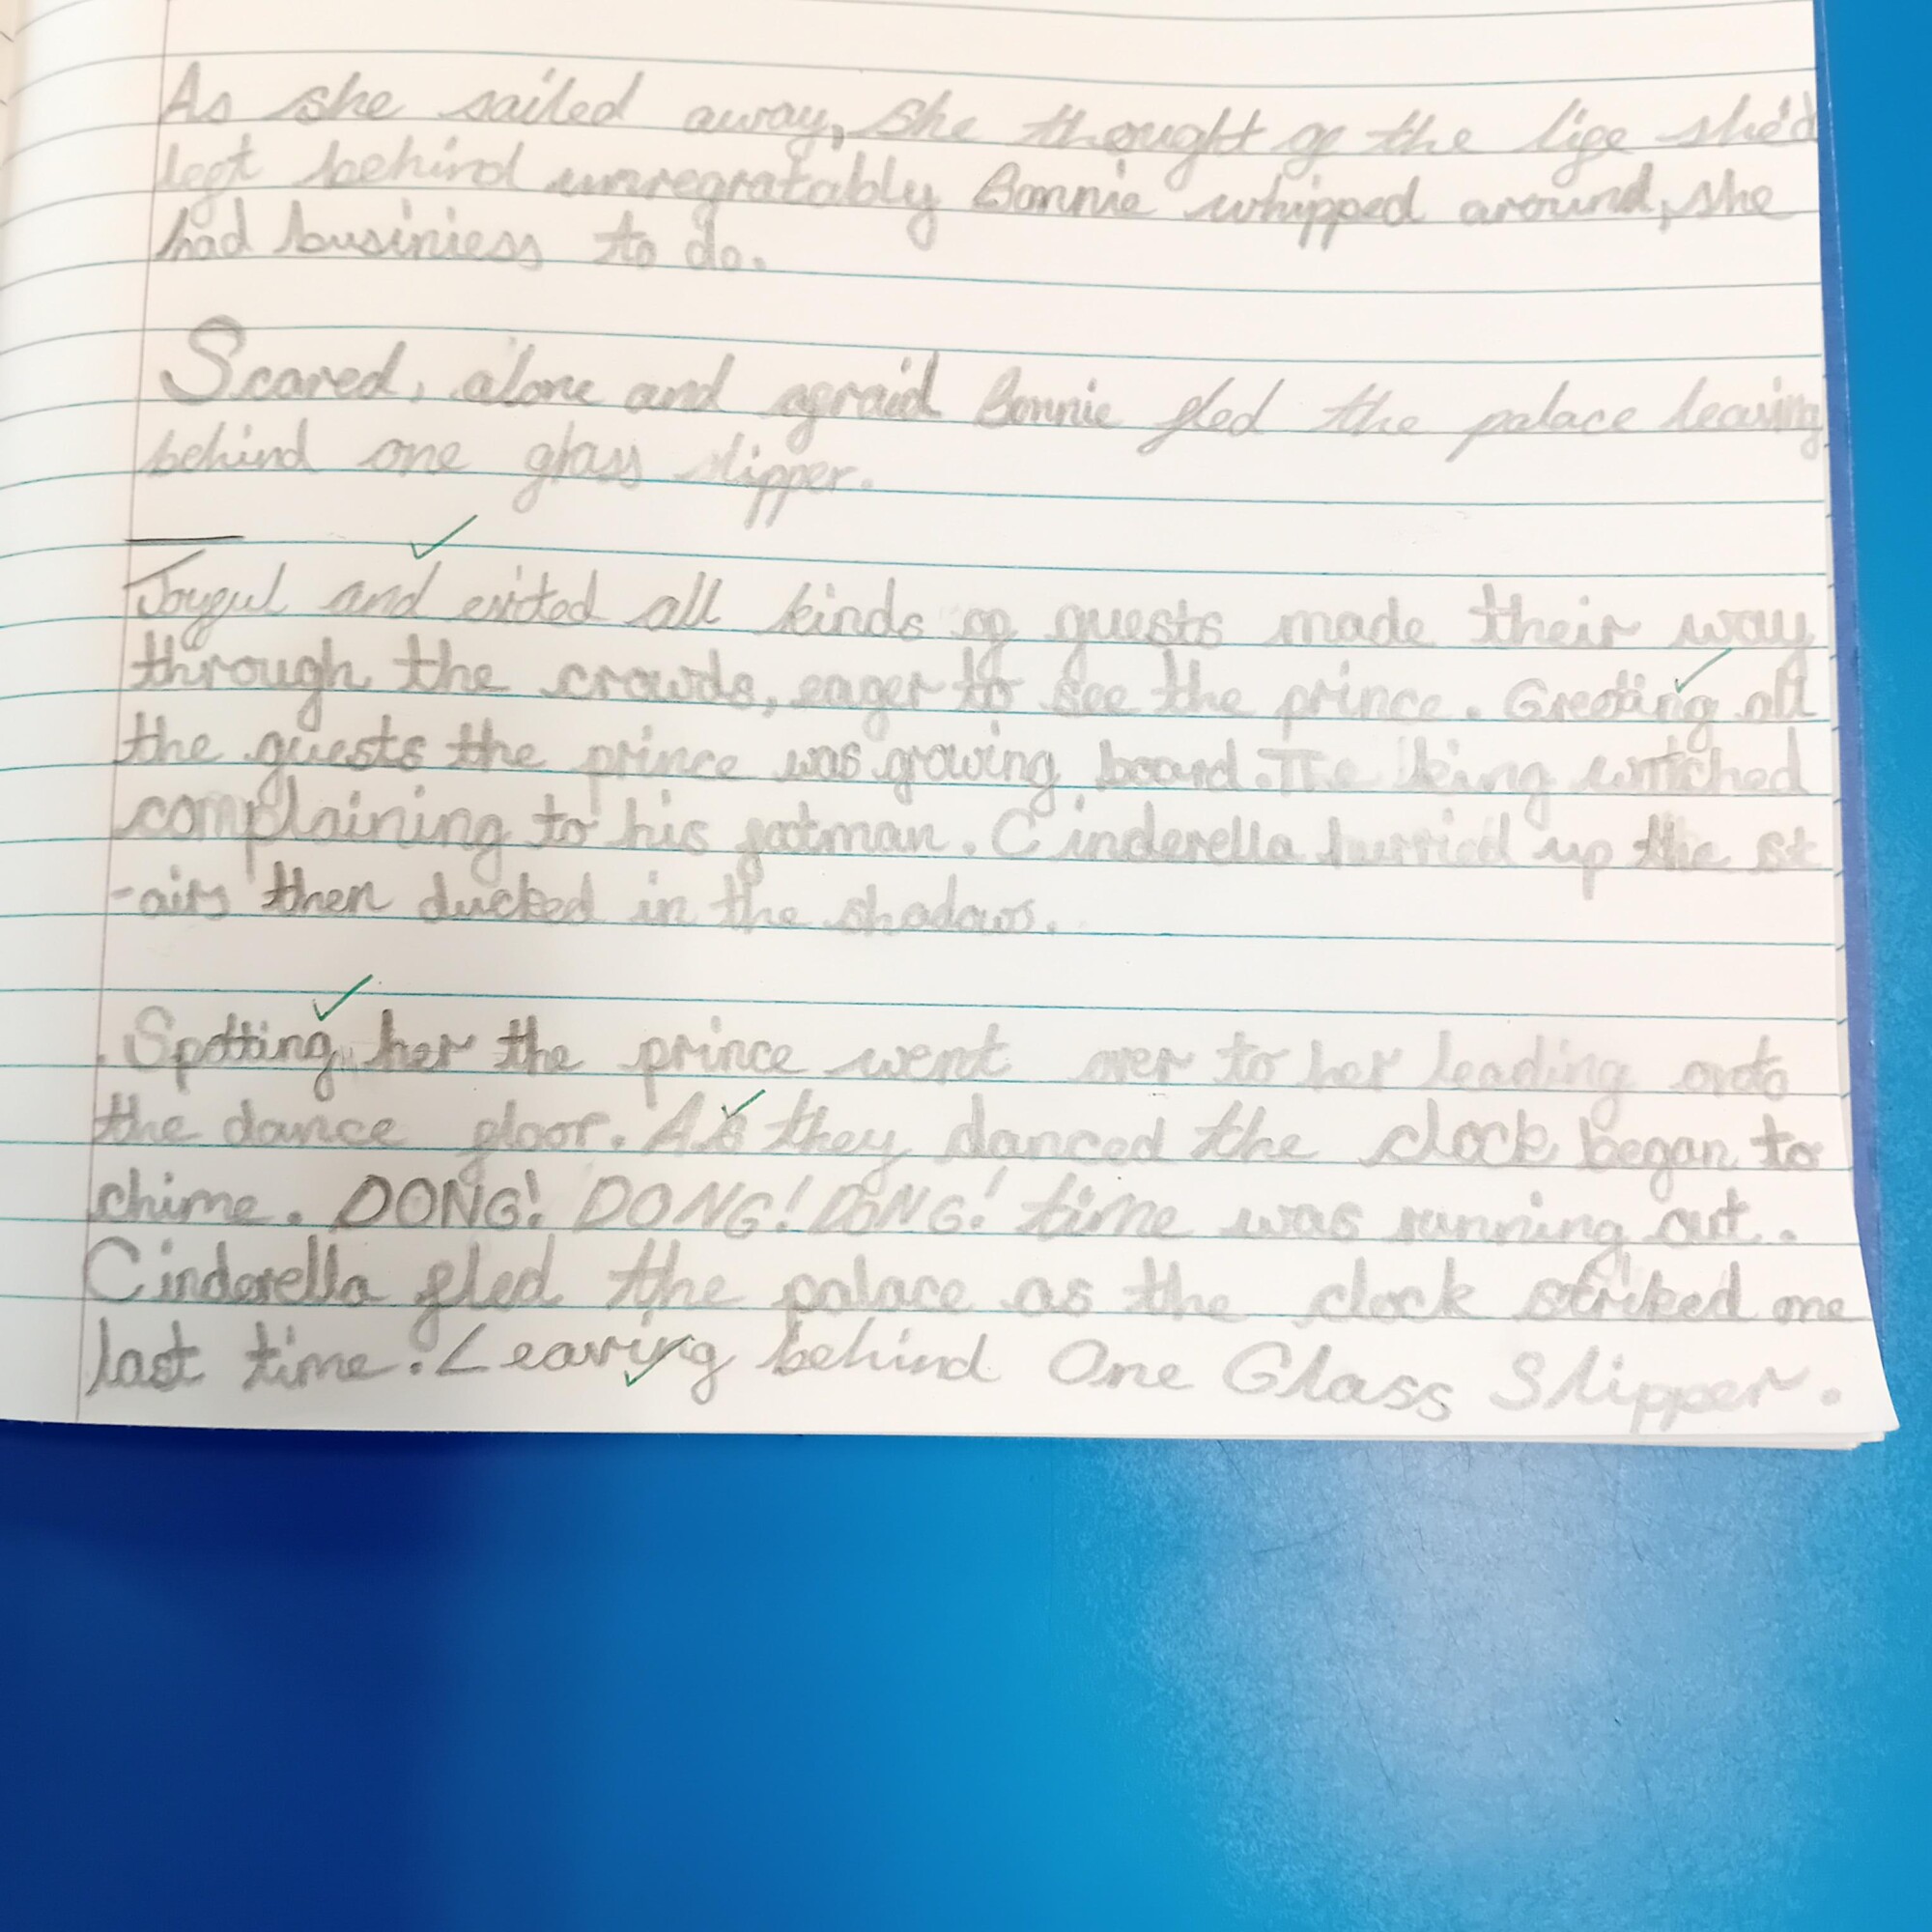 As she sailed away, she thought of the life she'd
left behind unregratably Bonnie whipped around, she
had businiess to do.
Scared, alone and afraid Bonnie fled the palace leaving
behind one glass slipper.
Joyful and exited all kinds of guests made their way
through the crowds, eager to see the prince. Greeting all
the guests the prince was growing board. The king watched
complaining to his footman. Cinderella hurried up the st
-airs then ducked in the shadows.
Spotting her the prince went over to her leading onto
the dance floor. As they danced the clock began to
chime. DONG! DONG! DONG! time was running out.
Cinderella fled the palace as the clock striked one
last time. Leaving behind One Glass Slipper.